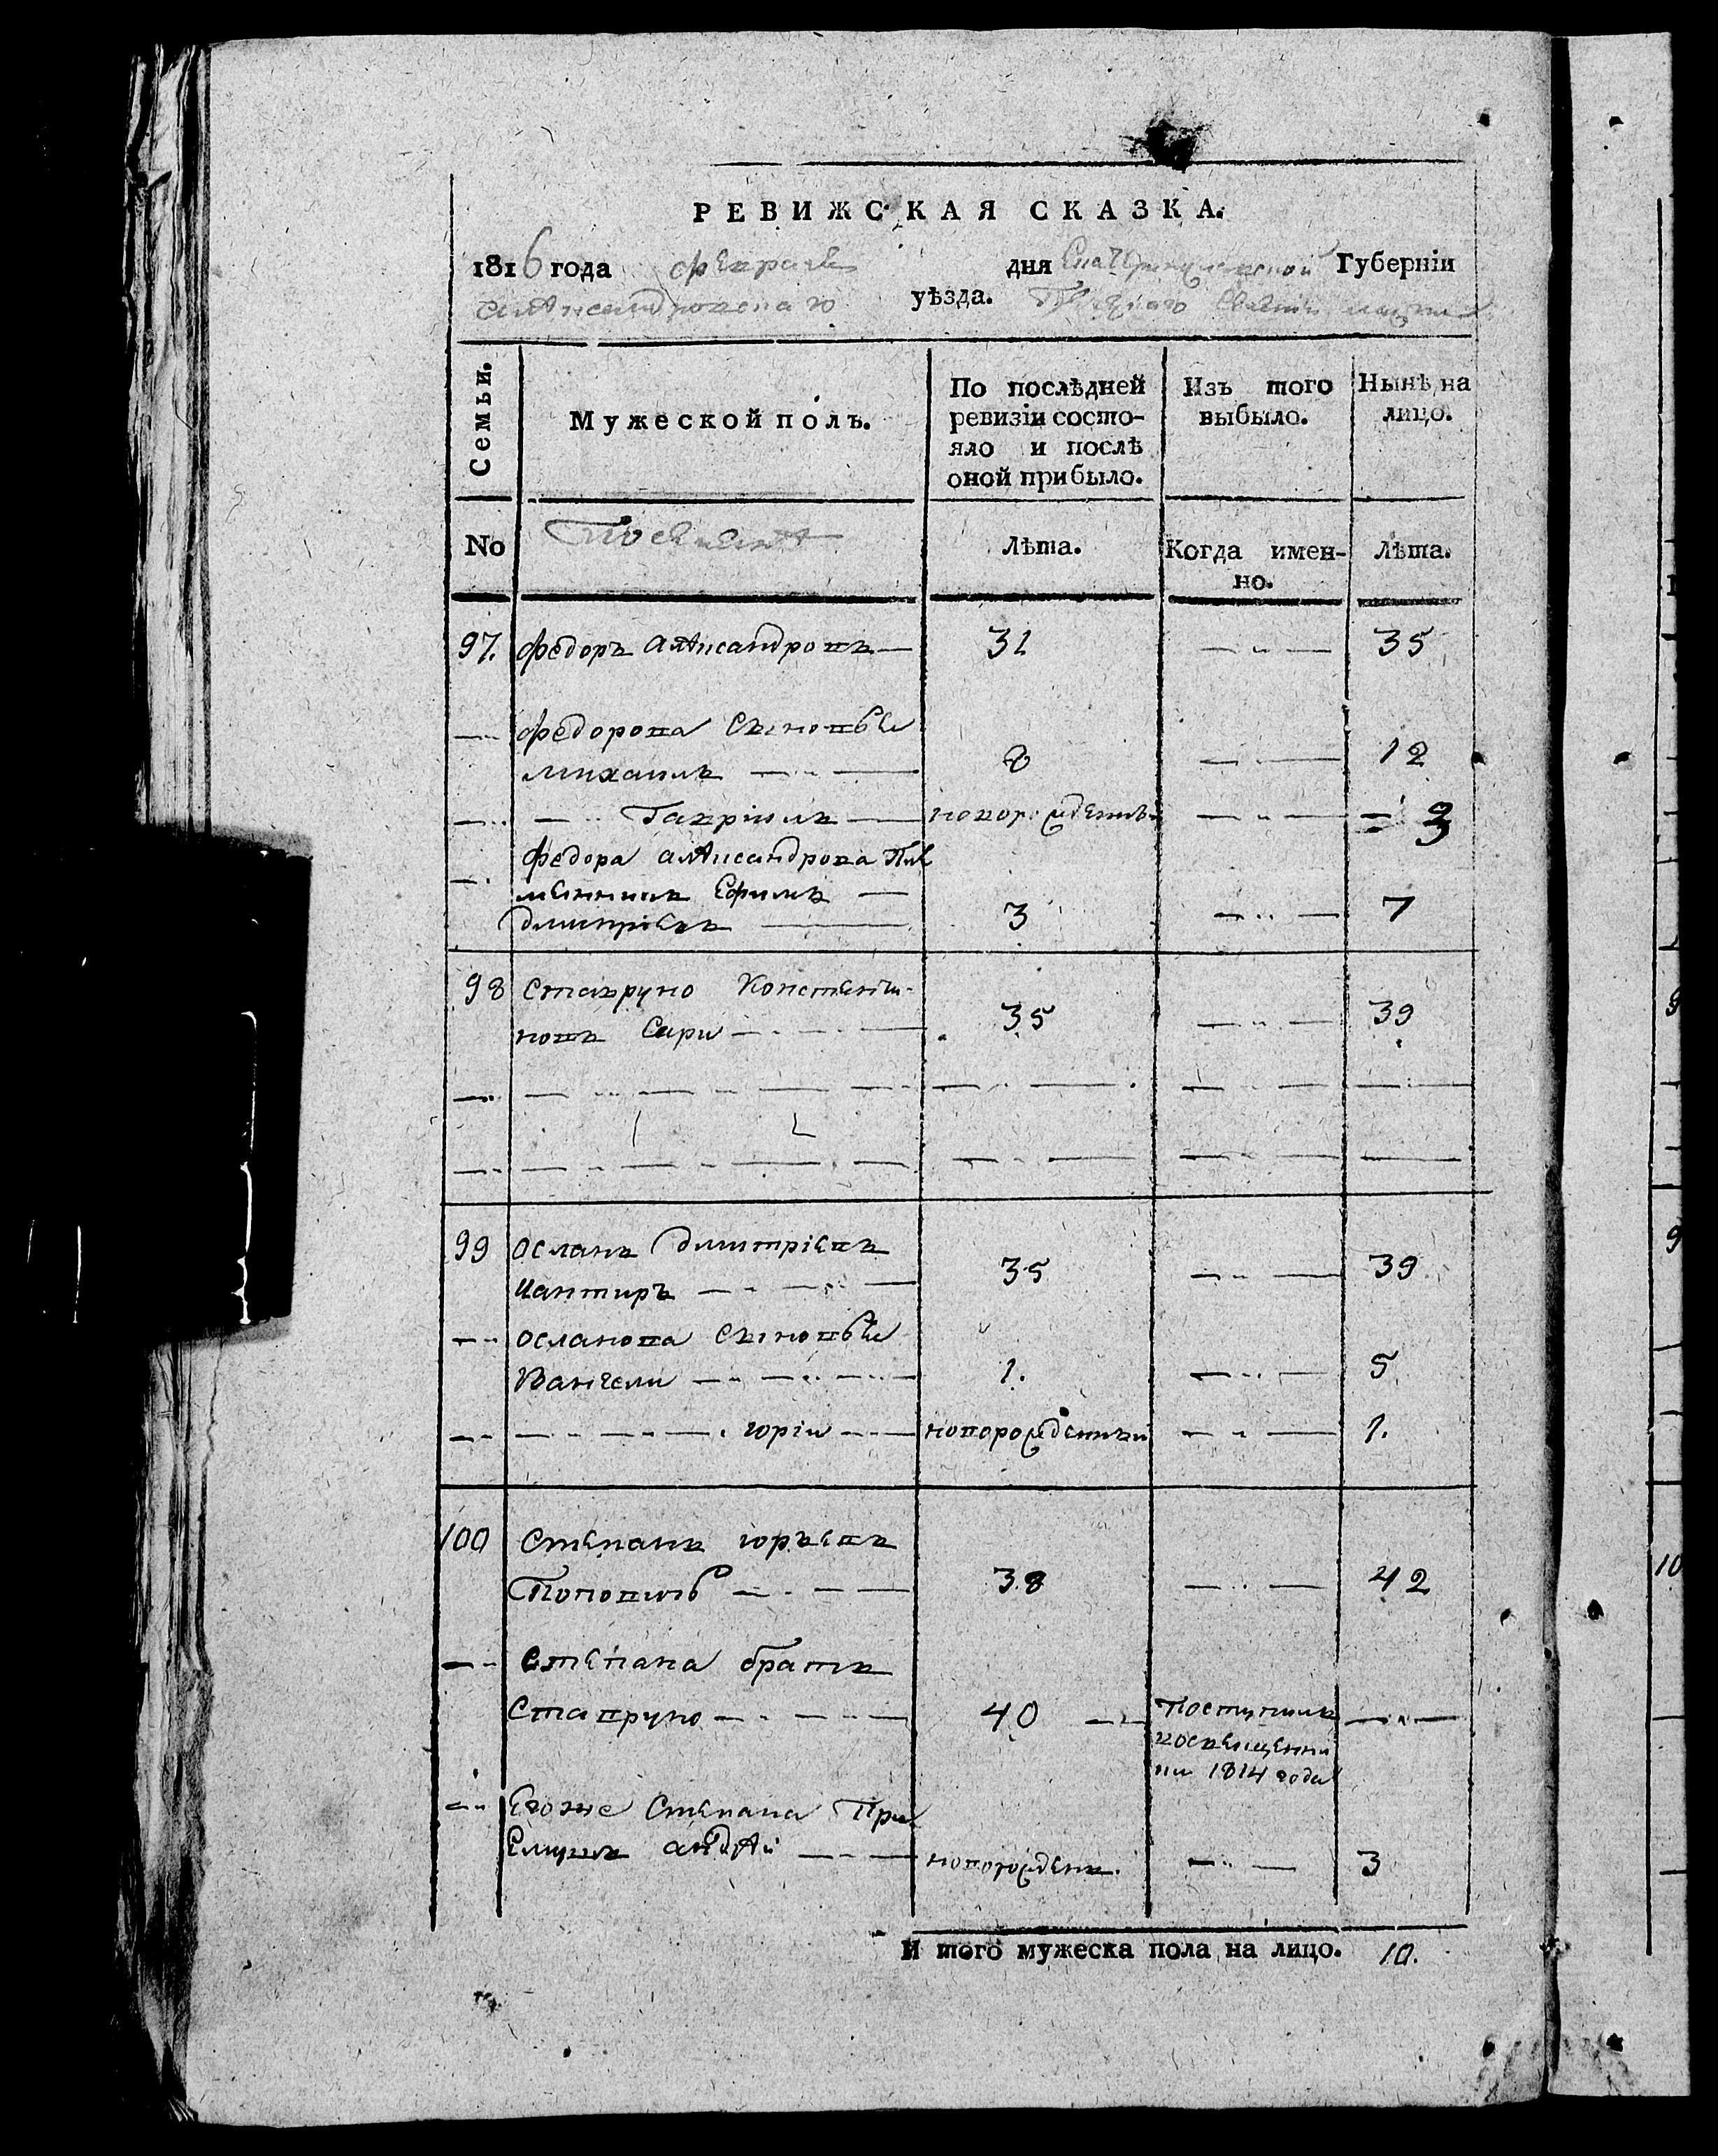 РЕВИЖСКАЯ СКАЗКА.
1816 года февраля дня Екатеринославской Губерніи
александровскаго уѣзда.
Семьи.
Мужеской полъ.
По послѣдней
ревизіи состо-
яло и послѣ
оной прибыло.
Изъ того
выбыло.
Нынѣ на
лицо.
No
Лѣта.
Когда имен-
но.
Лѣта.
97. федоръ александровъ 31 35
федорова сыновьи
михаилъ 8 12
Гаврiилъ новорожденъ 3
федора александрова пле
менникъ Ефимъ
дмитрiевъ 3 7
98 ставруно Константи-
новъ Сари 35 39
99 осланъ дмитрiевъ
чантиръ 35 39
осланова сыновьи
Вангели 1. 5
юрiи новорожденныи 1.
100 степанъ юрьевъ
Поповичь 38 42
степана братъ
ставруно 40 поступилъ
восвященни
ки 1814 года
Егоже степана при
емышъ андрѣй новорожденъ. 3
И того мужеска пола на лицо. 10.